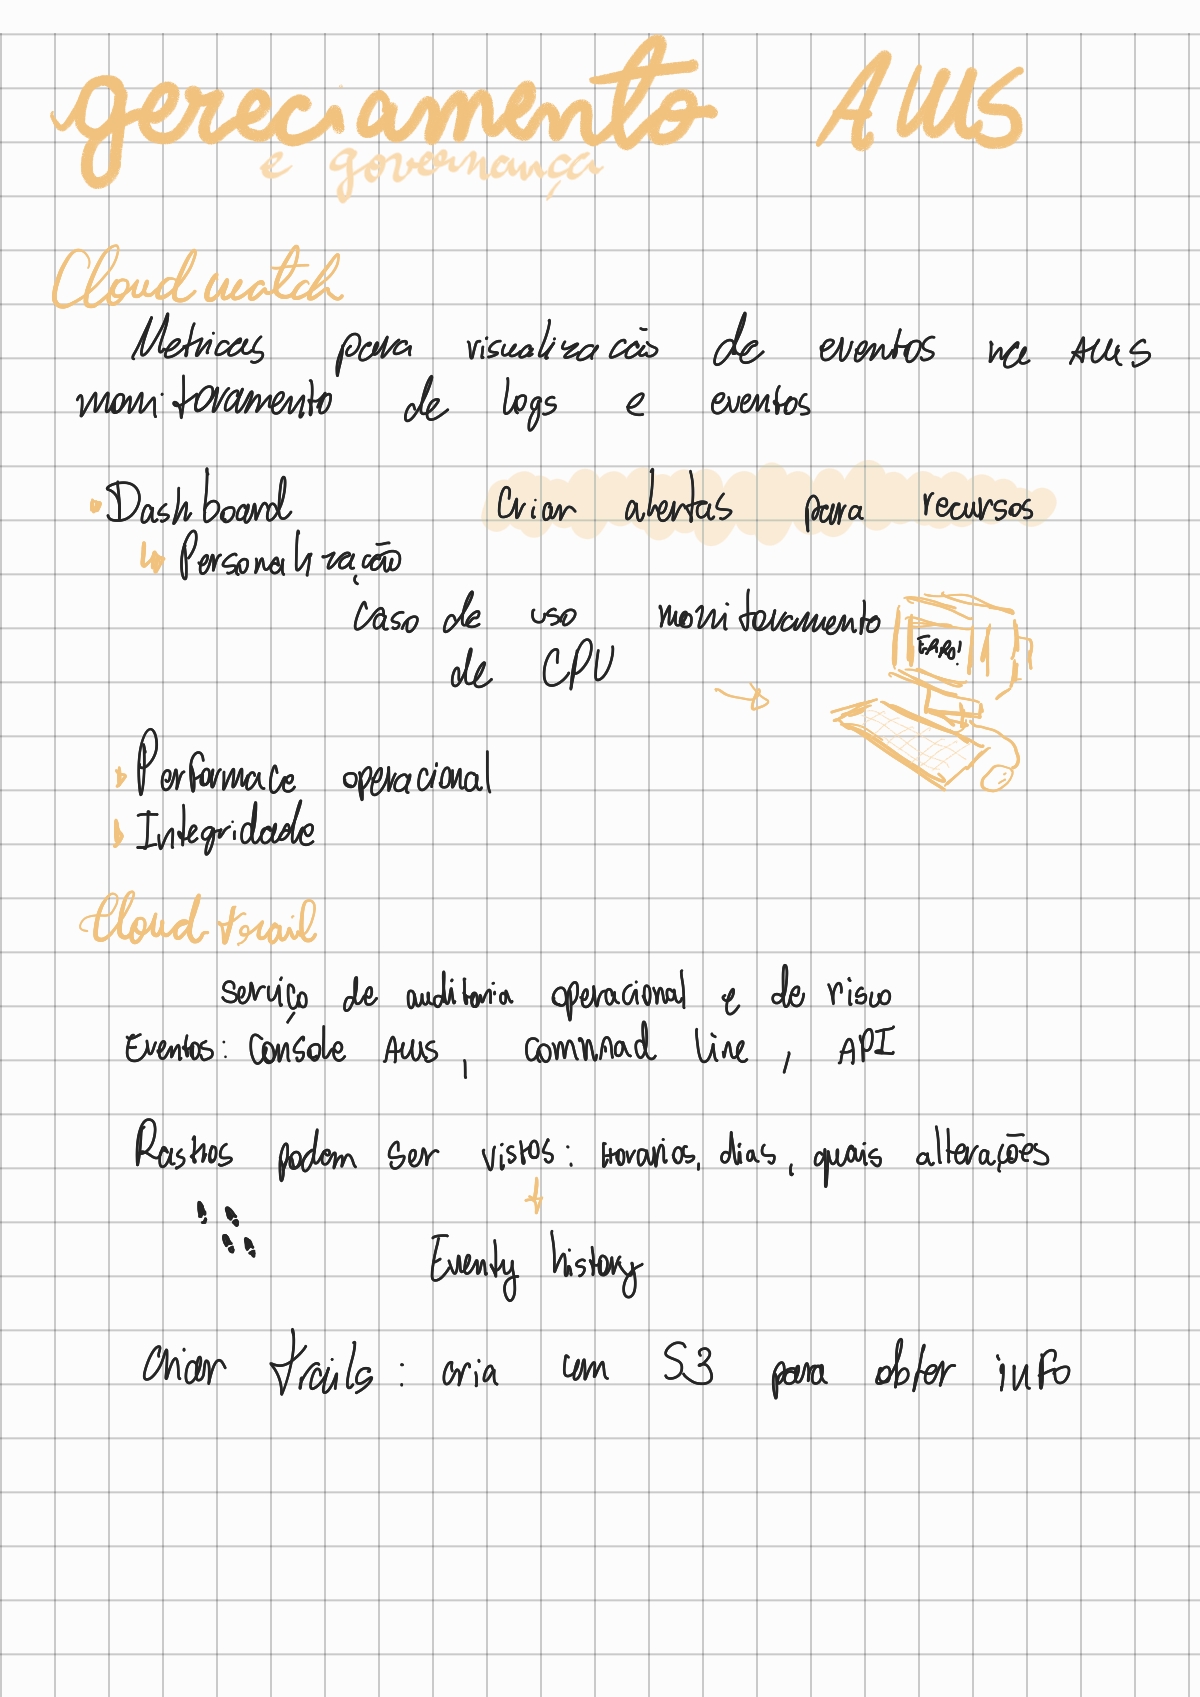 gereciamento AWS
e governança
Cloud watch
Metricas para visualização de eventos na AWS
monitoramento de logs e eventos
Dashboard
Criar alertas para recursos
Personalização
caso de uso monitoramento
de CPU
ERRO!
Performace operacional
Integridade
Cloud trail
serviço de auditoria operacional e de risco
Eventos: Console AWS, commnad line, API
Rastros podem ser vistos: Horarios, dias, quais alterações
Eventy history
Criar trails: cria com S3 para obter info